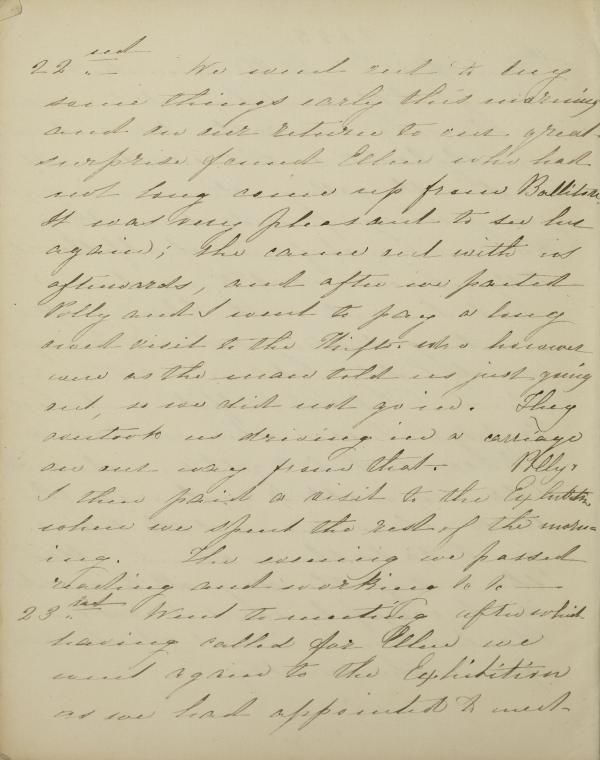 22nd We went out to buy
some things early this morning
and on our return to our great
surprise found Ellen who had
not long come up from Ballitore.
It was very pleasant to see her
again; she came out with us
afterwards, and after we parted
Polly and I went to pay a long
owed visit to the who however
were as the man told us just going
out, so we did not go in. They
overtook us driving in a carriage
on our way from that. Polly &
I then paid a visit to the Exhibition
where we spent the rest of the morn=
ing. The evening we passed
reading and working &c &c —
23rd Went to meeting after which
having called for Ellen we
went again to the Exhibition
as we had appointed to meet